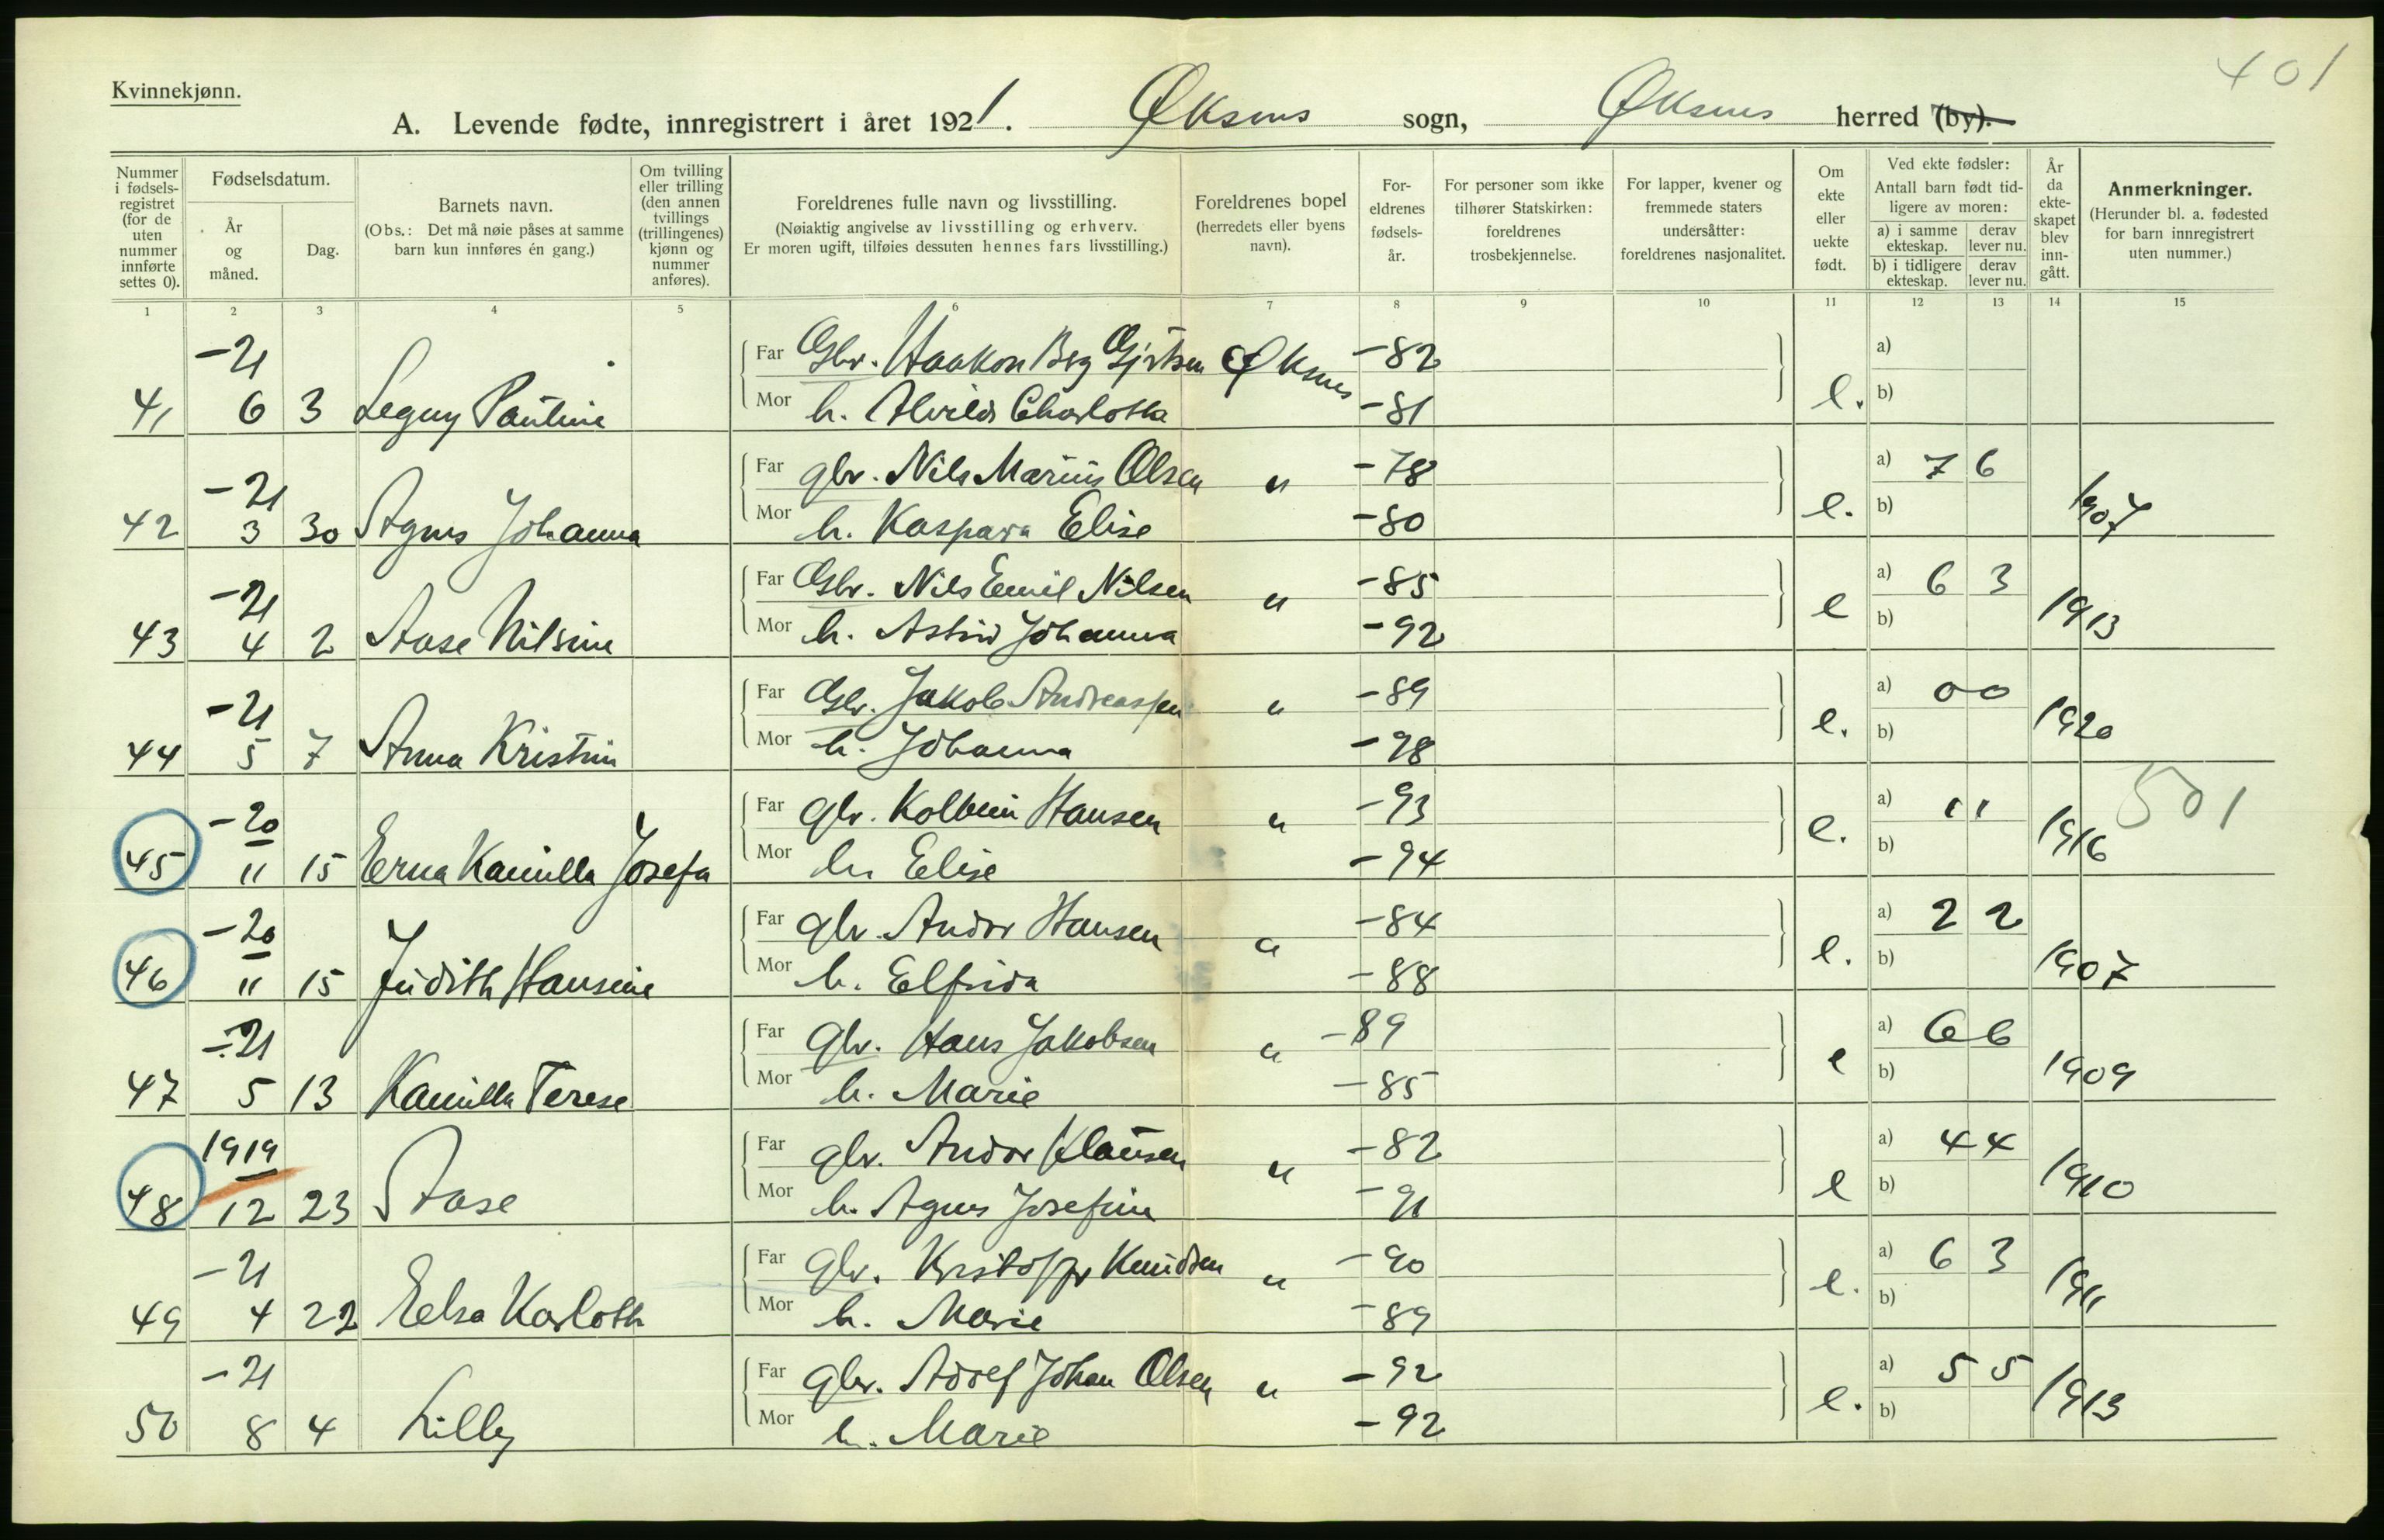 401
Kvinnekjønn.
A. Levende fødte, innregistrert i året 1921. Øksnes sogn, Øksnes herred (by).
Nummer i fødsels-registret (for de uten nummer innførte settes 0).
Fødselsdatum.
År og måned.
Dag.
Barnets navn.
(Obs.: Det må nøie påses at samme barn kun innføres én gang.)
Om tvilling eller trilling (den annen tvillings (trillingenes) kjønn og nummer anføres).
Foreldrenes fulle navn og livsstilling.
(Nøiaktig angivelse av livsstilling og erhverv.
Er moren ugift, tilføies dessuten hennes fars livsstilling.)
Foreldrenes bopel (herredets eller byens navn).
For-eldrenes fødsels-år.
For personer som ikke tilhører Statskirken: foreldrenes trosbekjennelse.
For lapper, kvener og fremmede staters undersåtter: foreldrenes nasjonalitet.
Om ekte eller uekte født.
Ved ekte fødsler:
Antall barn født tid-ligere av moren:
a) i samme ekteskap.
derav lever nu.
b) i tidligere ekteskap.
derav lever nu.
År da ekte-skapet blev inn-gått.
Anmerkninger.
(Herunder bl. a. fødested for barn innregistrert uten nummer.)
1 2 3 4 5 6 7 8 9 10 11 12 13 14 15
-21 Far Gbr. Haakon Berg Gjertsen Øksnes -82 a)
41 6 3 Legny Pauline Mor h. Alvilde Charlotta -81 e. b)
-21 Far gbr. Nils Marius Olsen " -78 a) 7 6
42 3 30 Agnes Johanna Mor h. Kaspara Elise -80 e. b) 1907
-21 Far Gbr. Nils Emil Nilsen " -85 a) 6 3
43 4 2 Aase Nilsine Mor h. Astrid Johanna -92 e b) 1913
-21 Far Gbr. Jakob Andreassen " -89 a) 0 0
44 5 7 Anna Kristin Mor h. Johanna -98 e. b) 1920
-20 Far gbr. Kolbein Hansen " -93 a) 1 1 501
45 11 15 Erna Kamilla Josefa Mor h. Elise -94 e. b) 1916
-20 Far gbr. Andor Hansen " -84 a) 2 2
46 11 15 Judith Hansine Mor h. Elfrida -88 e. b) 1907
-21 Far gbr. Hans Jakobsen " -89 a) 6 6
47 5 13 Kamilla Terese Mor h. Marie -85 e b) 1909
1919 Far gbr. Andor Klausen " -82 a) 4 4
48 12 23 Aase Mor h. Agnes Josefine -91 e b) 1910
-21 Far gbr. Kristoffer Knudsen " -90 a) 6 3
49 4 22 Eelsa Karloth Mor h. Marie -89 e. b) 1911
-21 Far gbr. Adolf Johan Olsen " -92 a) 5 5
50 8 4 Lilly Mor h. Marie -92 e. b) 1913